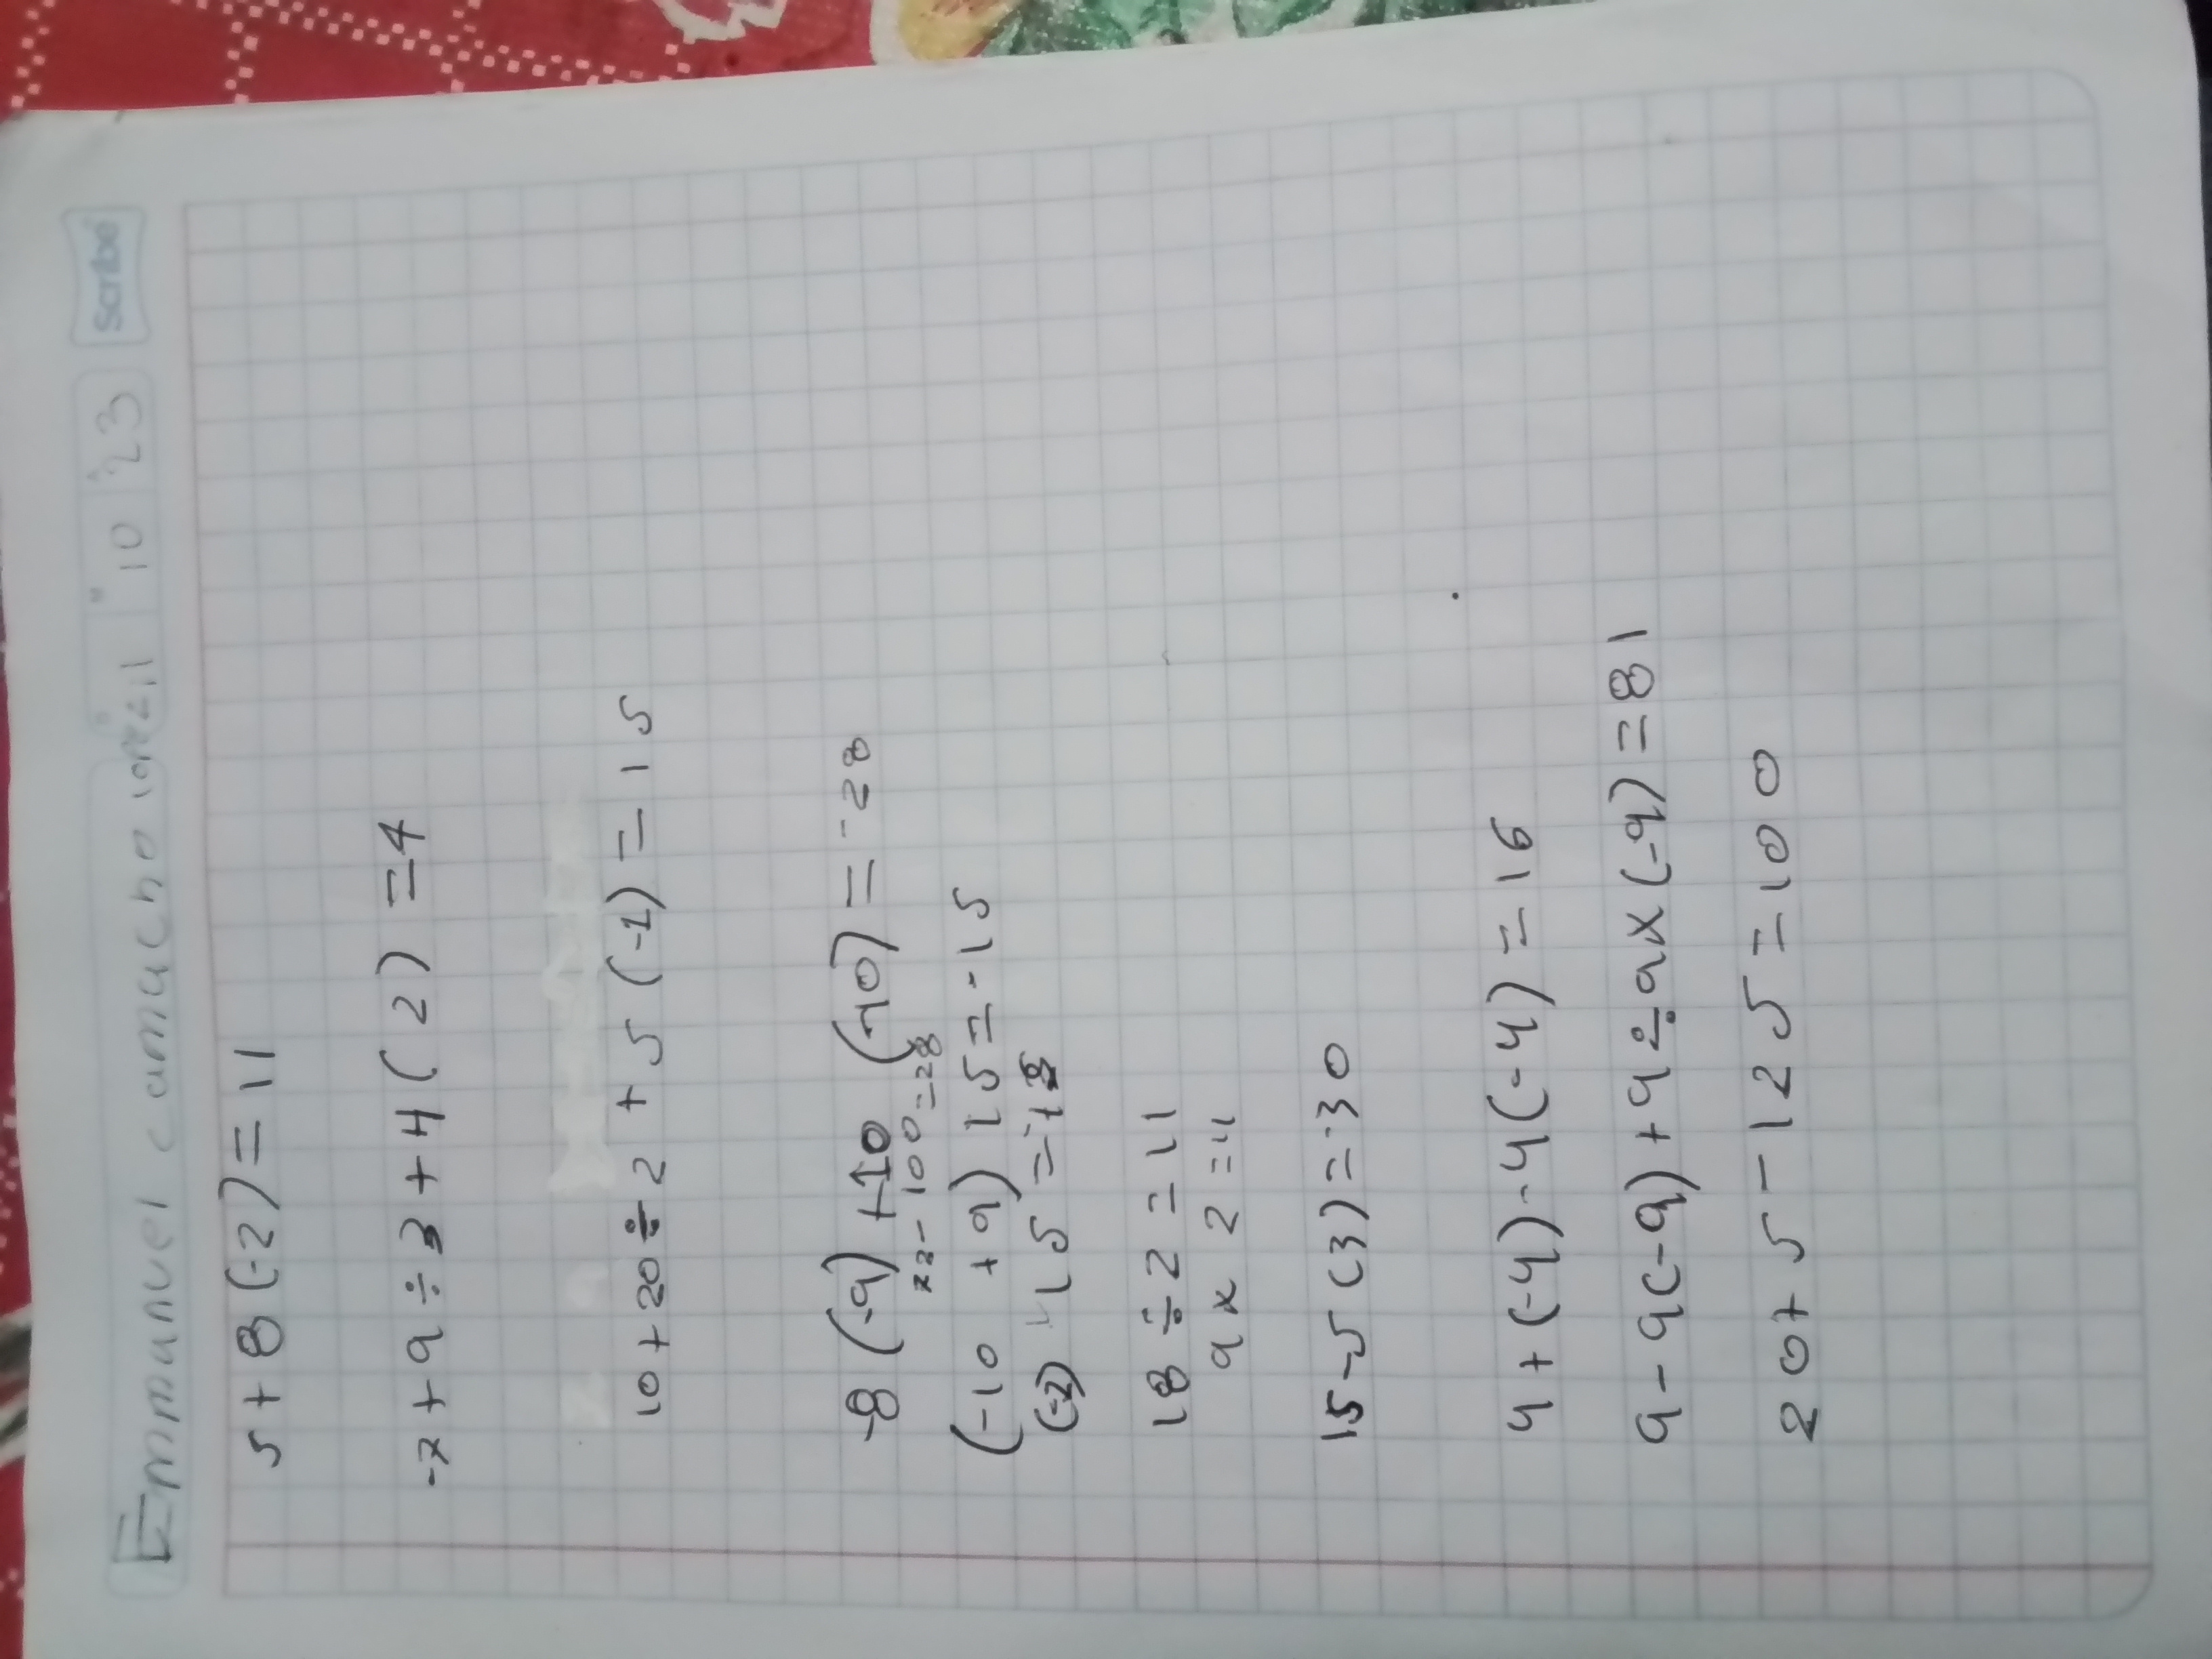 Emmanuel camacho lopez 11 10 23 Scribe
5 + 8 (-2) = 11
-7 + 9 ÷ 3 + 4 ( 2 ) = 4
10 + 20 ÷ 2 + 5 (-1) = 15
-8 (-9) +10 (-10) = -28
72 - 100 = -28
(-10 + 9) 15 = -15
15 =
18 ÷ 2 = 11
9 x 2 = 11
15 - 5 (3) = -30
4 + (-4) - 4 (-4) = 16
9 - 9 (-9) + 9 ÷ 9 x (-9) = 81
20 + 5 - 125 = 100